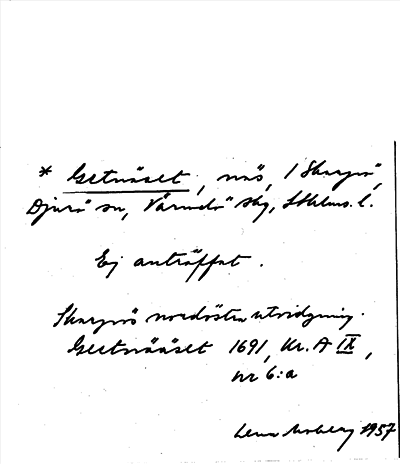 * Getnäset, näs, / Skarpö,
Djurö sn, Värmdö skg, Sthlms. l.
Ej anträffat.
Skarpös nordöstra utvidgning.
Geetnääset 1691, Kr. A IX,
nr 6:a
Lena Moberg 1957